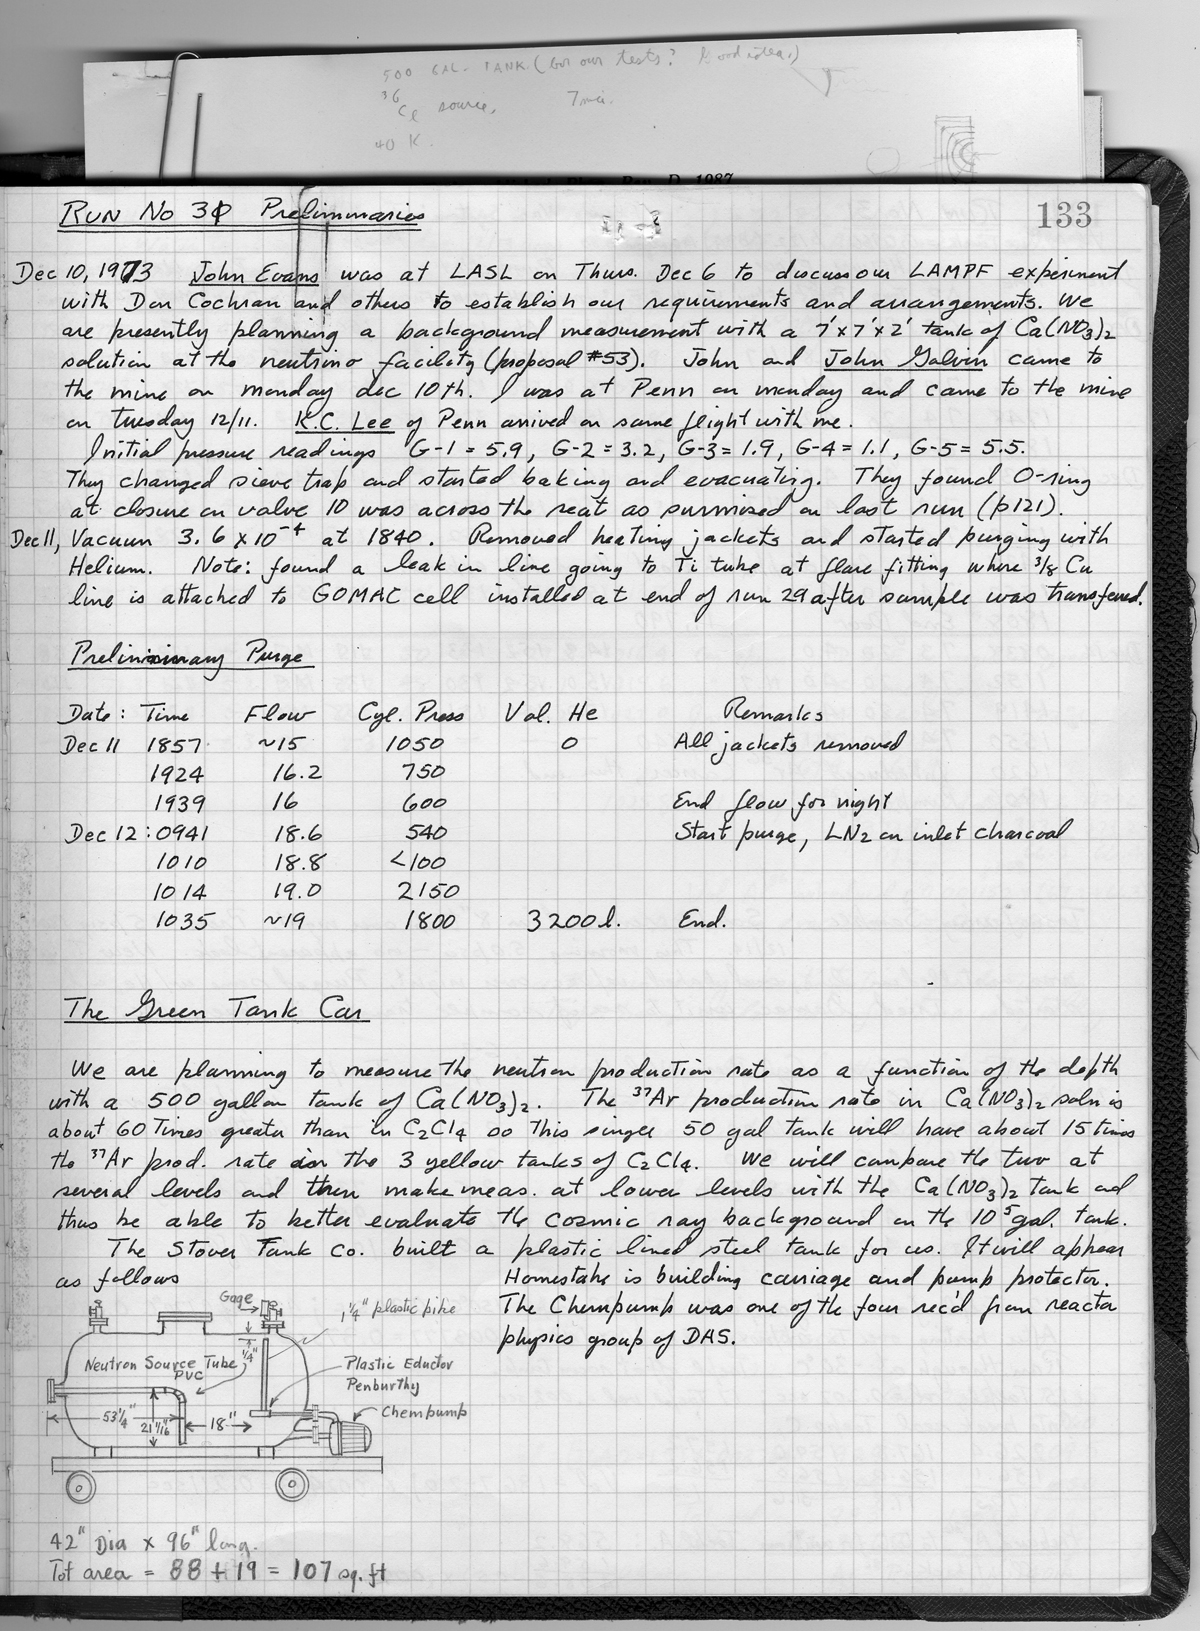 500 GAL. TANK. (for our tests? Good idea.)
36
Cl source, 7 mci.
40 K.
Phys. Rev. D. 1987
RUN No 30 Preliminaries
133
Dec 10, 1973 John Evans was at LASL on Thurs. Dec 6 to discuss our LAMPF experiment
with Don Cochran and others to establish our requirements and arrangements. We
are presently planning a background measurement with a 7'x7'x2' tank of Ca(NO3)2
solution at the neutrino facility (proposal #53). John and John Galvin came to
the mine on monday dec 10th. I was at Penn on monday and came to the mine
on Tuesday 12/11. K.C. Lee of Penn arrived on same flight with me.
Initial pressure readings G-1 = 5.9, G-2 = 3.2, G-3 = 1.9, G-4 = 1.1, G-5 = 5.5.
They changed sieve trap and started baking and evacuating. They found O-ring
at closure on valve 10 was across the seat as surmised on last run (p121).
Dec 11, Vacuum 3.6 x 10^-4 at 1840. Removed heating jackets and started purging with
Helium. Note: found a leak in line going to Ti tube at flare fitting where 3/8 Cu
line is attached to GOMAC cell installed at end of run 29 after sample was transferred.
Preliminary Purge
Date: Time Flow Cyl. Press Vol. He Remarks
Dec 11 1857 ~15 1050 0 All jackets removed
1924 16.2 750
1939 16 600 End flow for night
Dec 12: 0941 18.6 540 Start purge, LN2 on inlet charcoal
1010 18.8 <100
1014 19.0 2150
1035 ~19 1800 3200 l. End.
The Green Tank Car
We are planning to measure the neutron production rate as a function of the depth
with a 500 gallon tank of Ca(NO3)2. The 37Ar production rate in Ca(NO3)2 soln is
about 60 Times greater than in C2Cl4 so this singer 50 gal tank will have about 15 times
the 37Ar prod. rate in the 3 yellow tanks of C2Cl4. We will compare the two at
several levels and then make meas. at lower levels with the Ca(NO3)2 Tank and
thus be able to better evaluate the cosmic ray background on the 10^5 gal. tank.
The Stover Tank Co. built a plastic lined steel tank for us. It will appear
as follows Homestake is building carriage and pump protector.
The Chempump was one of the four rec'd from reactor
physics group of DAS.
Gage
1 1/4" plastic pipe
1/4"
Neutron Source Tube
PVC
Plastic Eductor
Penburthy
Chempump
53 1/4"
21 7/16"
18"
42" Dia x 96" long.
Tot area = 88 + 19 = 107 sq. ft